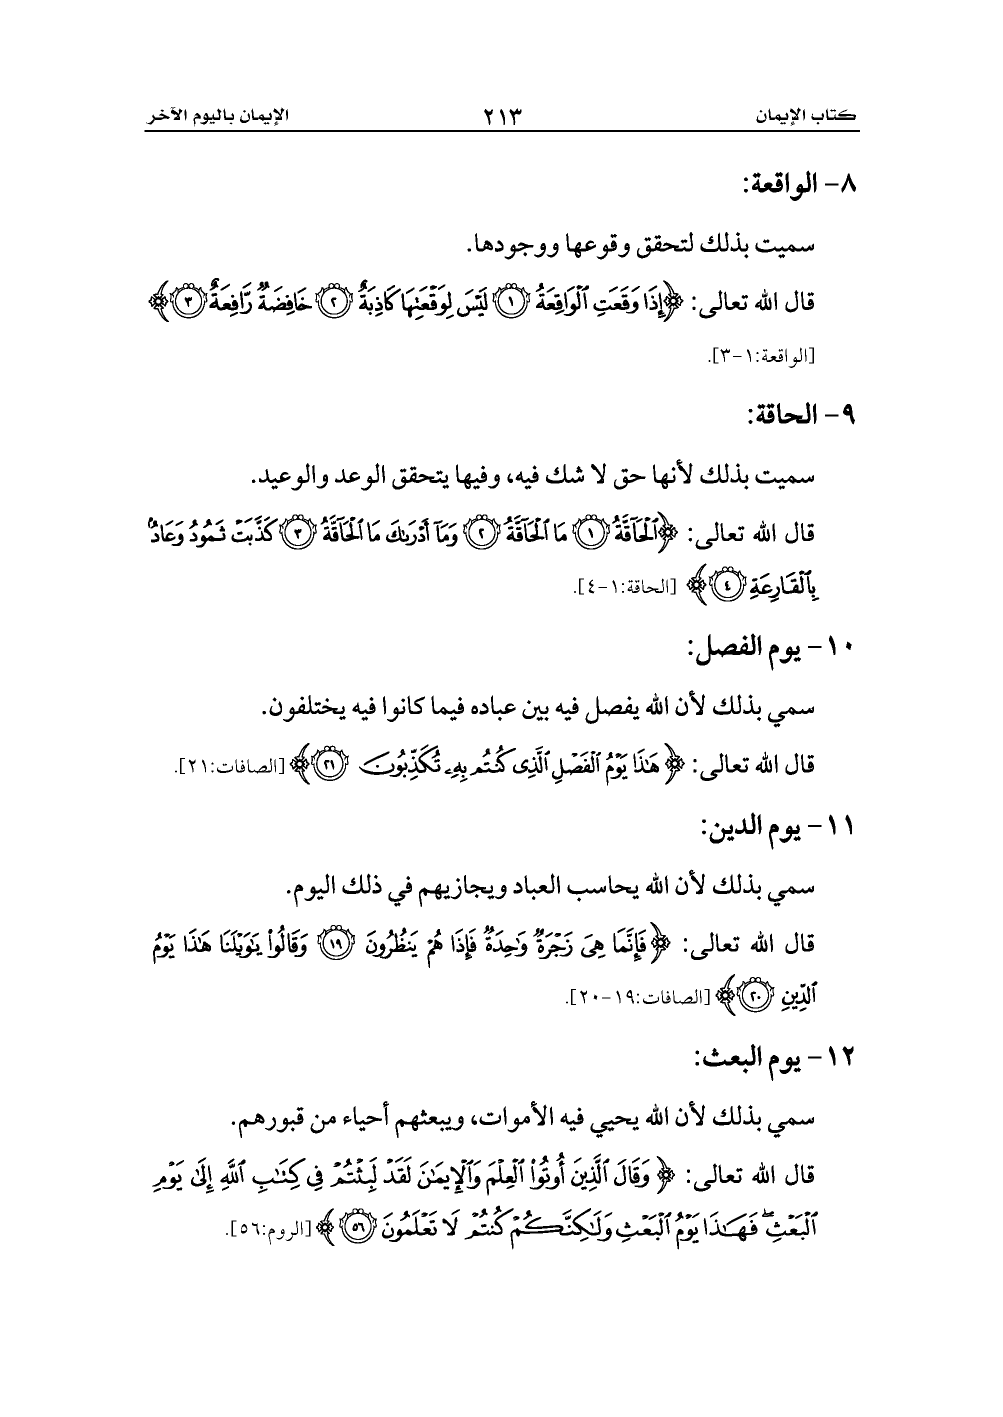 كتاب الإيمان ٢١٣ الإيمان باليوم الآخر
٨- الواقعة:
سميت بذلك لتحقق وقوعها ووجودها.
قال الله تعالى: ﴿إِذَا وَقَعَتِ ٱلْوَاقِعَةُ ١ لَيْسَ لِوَقْعَتِهَا كَاذِبَةٌ ٢ خَافِضَةٌ رَّافِعَةٌ ٣﴾
[الواقعة:١-٣].
٩- الحاقة:
سميت بذلك لأنها حق لا شك فيه، وفيها يتحقق الوعد والوعيد.
قال الله تعالى: ﴿ٱلْحَآقَّةُ ١ مَا ٱلْحَآقَّةُ ٢ وَمَآ أَدْرَىٰكَ مَا ٱلْحَآقَّةُ ٣ كَذَّبَتْ ثَمُودُ وَعَادٌۢ
بِٱلْقَارِعَةِ ٤﴾ [الحاقة:١-٤].
١٠- يوم الفصل:
سمي بذلك لأن الله يفصل فيه بين عباده فيما كانوا فيه يختلفون.
قال الله تعالى: ﴿هَٰذَا يَوْمُ ٱلْفَصْلِ ٱلَّذِى كُنتُم بِهِۦ تُكَذِّبُونَ ٢١﴾ [الصافات:٢١].
١١- يوم الدين:
سمي بذلك لأن الله يحاسب العباد ويجازيهم في ذلك اليوم.
قال الله تعالى: ﴿فَإِنَّمَا هِىَ زَجْرَةٌ وَٰحِدَةٌ فَإِذَا هُمْ يَنظُرُونَ ١٩ وَقَالُوا۟ يَٰوَيْلَنَا هَٰذَا يَوْمُ
ٱلدِّينِ ٢٠﴾ [الصافات:١٩-٢٠].
١٢- يوم البعث:
سمي بذلك لأن الله يحيي فيه الأموات، ويبعثهم أحياء من قبورهم.
قال الله تعالى: ﴿وَقَالَ ٱلَّذِينَ أُوتُوا۟ ٱلْعِلْمَ وَٱلْإِيمَٰنَ لَقَدْ لَبِثْتُمْ فِى كِتَٰبِ ٱللَّهِ إِلَىٰ يَوْمِ
ٱلْبَعْثِ ۖ فَهَٰذَا يَوْمُ ٱلْبَعْثِ وَلَٰكِنَّكُمْ كُنتُمْ لَا تَعْلَمُونَ ٥٦﴾ [الروم:٥٦].